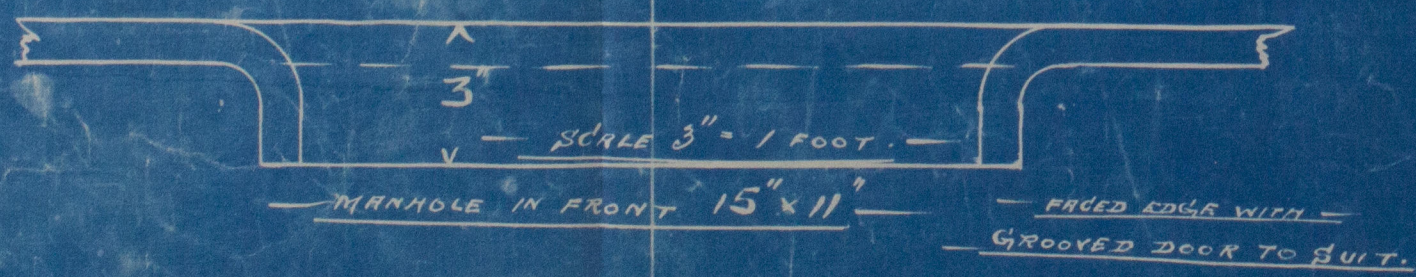 3"
SCALE 3" = 1 FOOT.
MANHOLE IN FRONT 15" x 11"
FACED EDGE WITH
GROOVED DOOR TO SUIT.